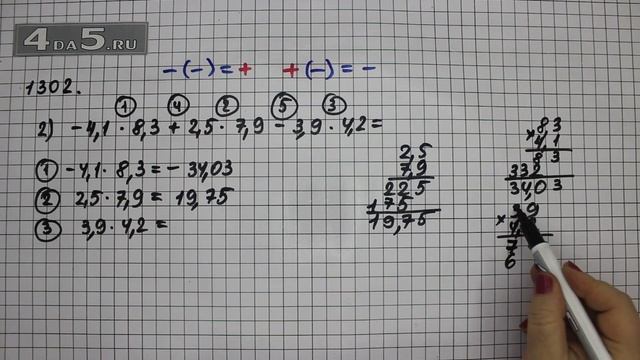 4DA5.RU
−(−)=+ +(−)=−
1302.
1 4 2 5 3
2) −4,1 · 8,3 + 2,5 · 7,9 − 3,9 · 4,2 =
1 −4,1 · 8,3 = −34,03
2 2,5 · 7,9 = 19,75
3 3,9 · 4,2 =
2,5
7,9
225
175
19,75
83
× 4,1
83
332
34,03
39
×
7
6